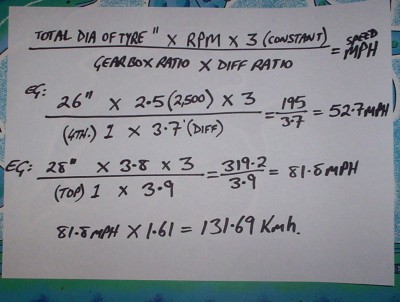 TOTAL DIA OF TYRE" X RPM X 3 (CONSTANT)
GEARBOX RATIO X DIFF RATIO
= SPEED MPH
EG: 26" X 2.5 (2,500) X 3
(4TH.) 1 X 3.7 (DIFF)
= 195 / 3.7 = 52.7 MPH
EG: 28" X 3.8 X 3
(TOP) 1 X 3.9
= 319.2 / 3.9 = 81.8 MPH
81.8 MPH X 1.61 = 131.69 Kmh.